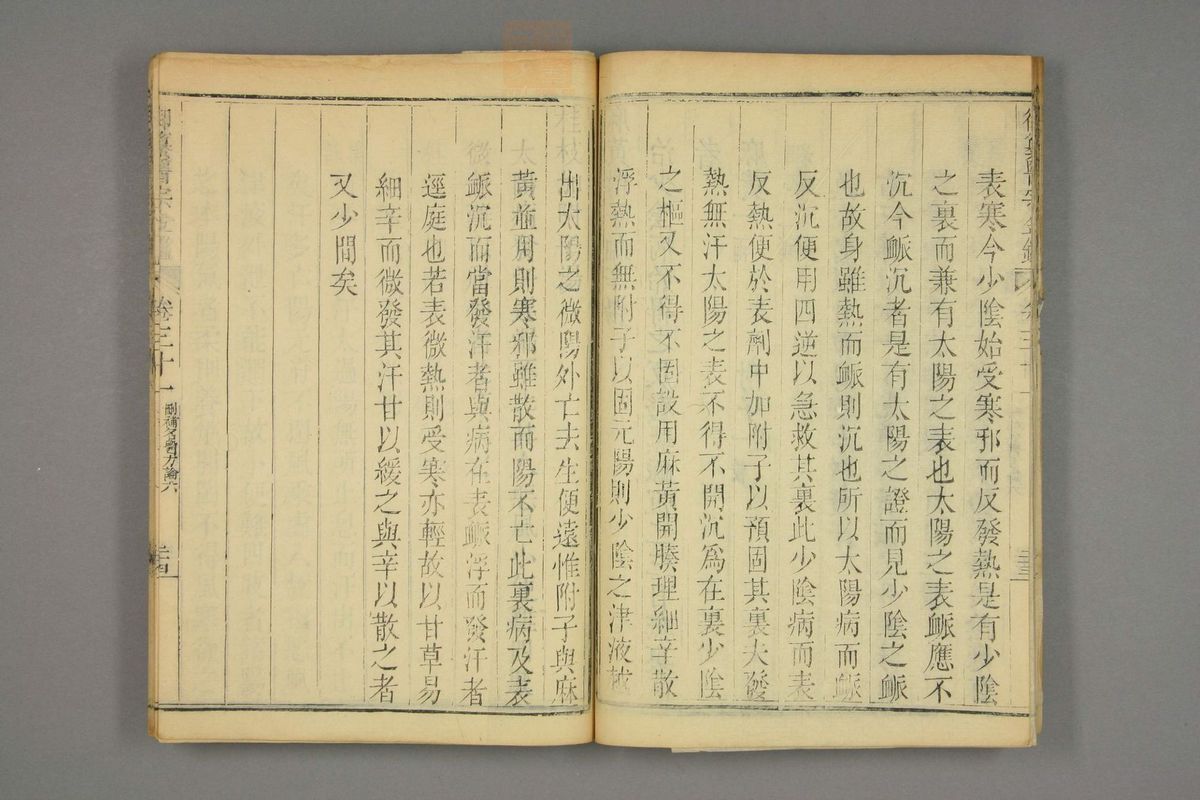 表寒今少陰始受寒邪而反發熱是有少陰
之裏而兼有太陽之表也太陽之表脈應不
沉今脈沉者是有太陽之證而見少陰之脈
也故身雖熱而脈則沉也所以太陽病而脈
反沉便用四逆以急救其裏此少陰病而表
反熱便於表劑中加附子以預固其裏夫發
熱無汗太陽之表不得不開沉為在裏少陰
之樞又不得不固設用麻黃開腠理細辛散
浮熱而無附子以固元陽則少陰之津液越
出太陽之微陽外亡去生便遠惟附子與麻
黃竝用則寒邪雖散而陽不亡此裏病及表
脈沉而當發汗者與病在表脈浮而發汗者
逕庭也若表微熱則受寒亦輕故以甘草易
細辛而微發其汗甘以緩之與辛以散之者
又少間矣
卷三十一
刪補名醫方論六